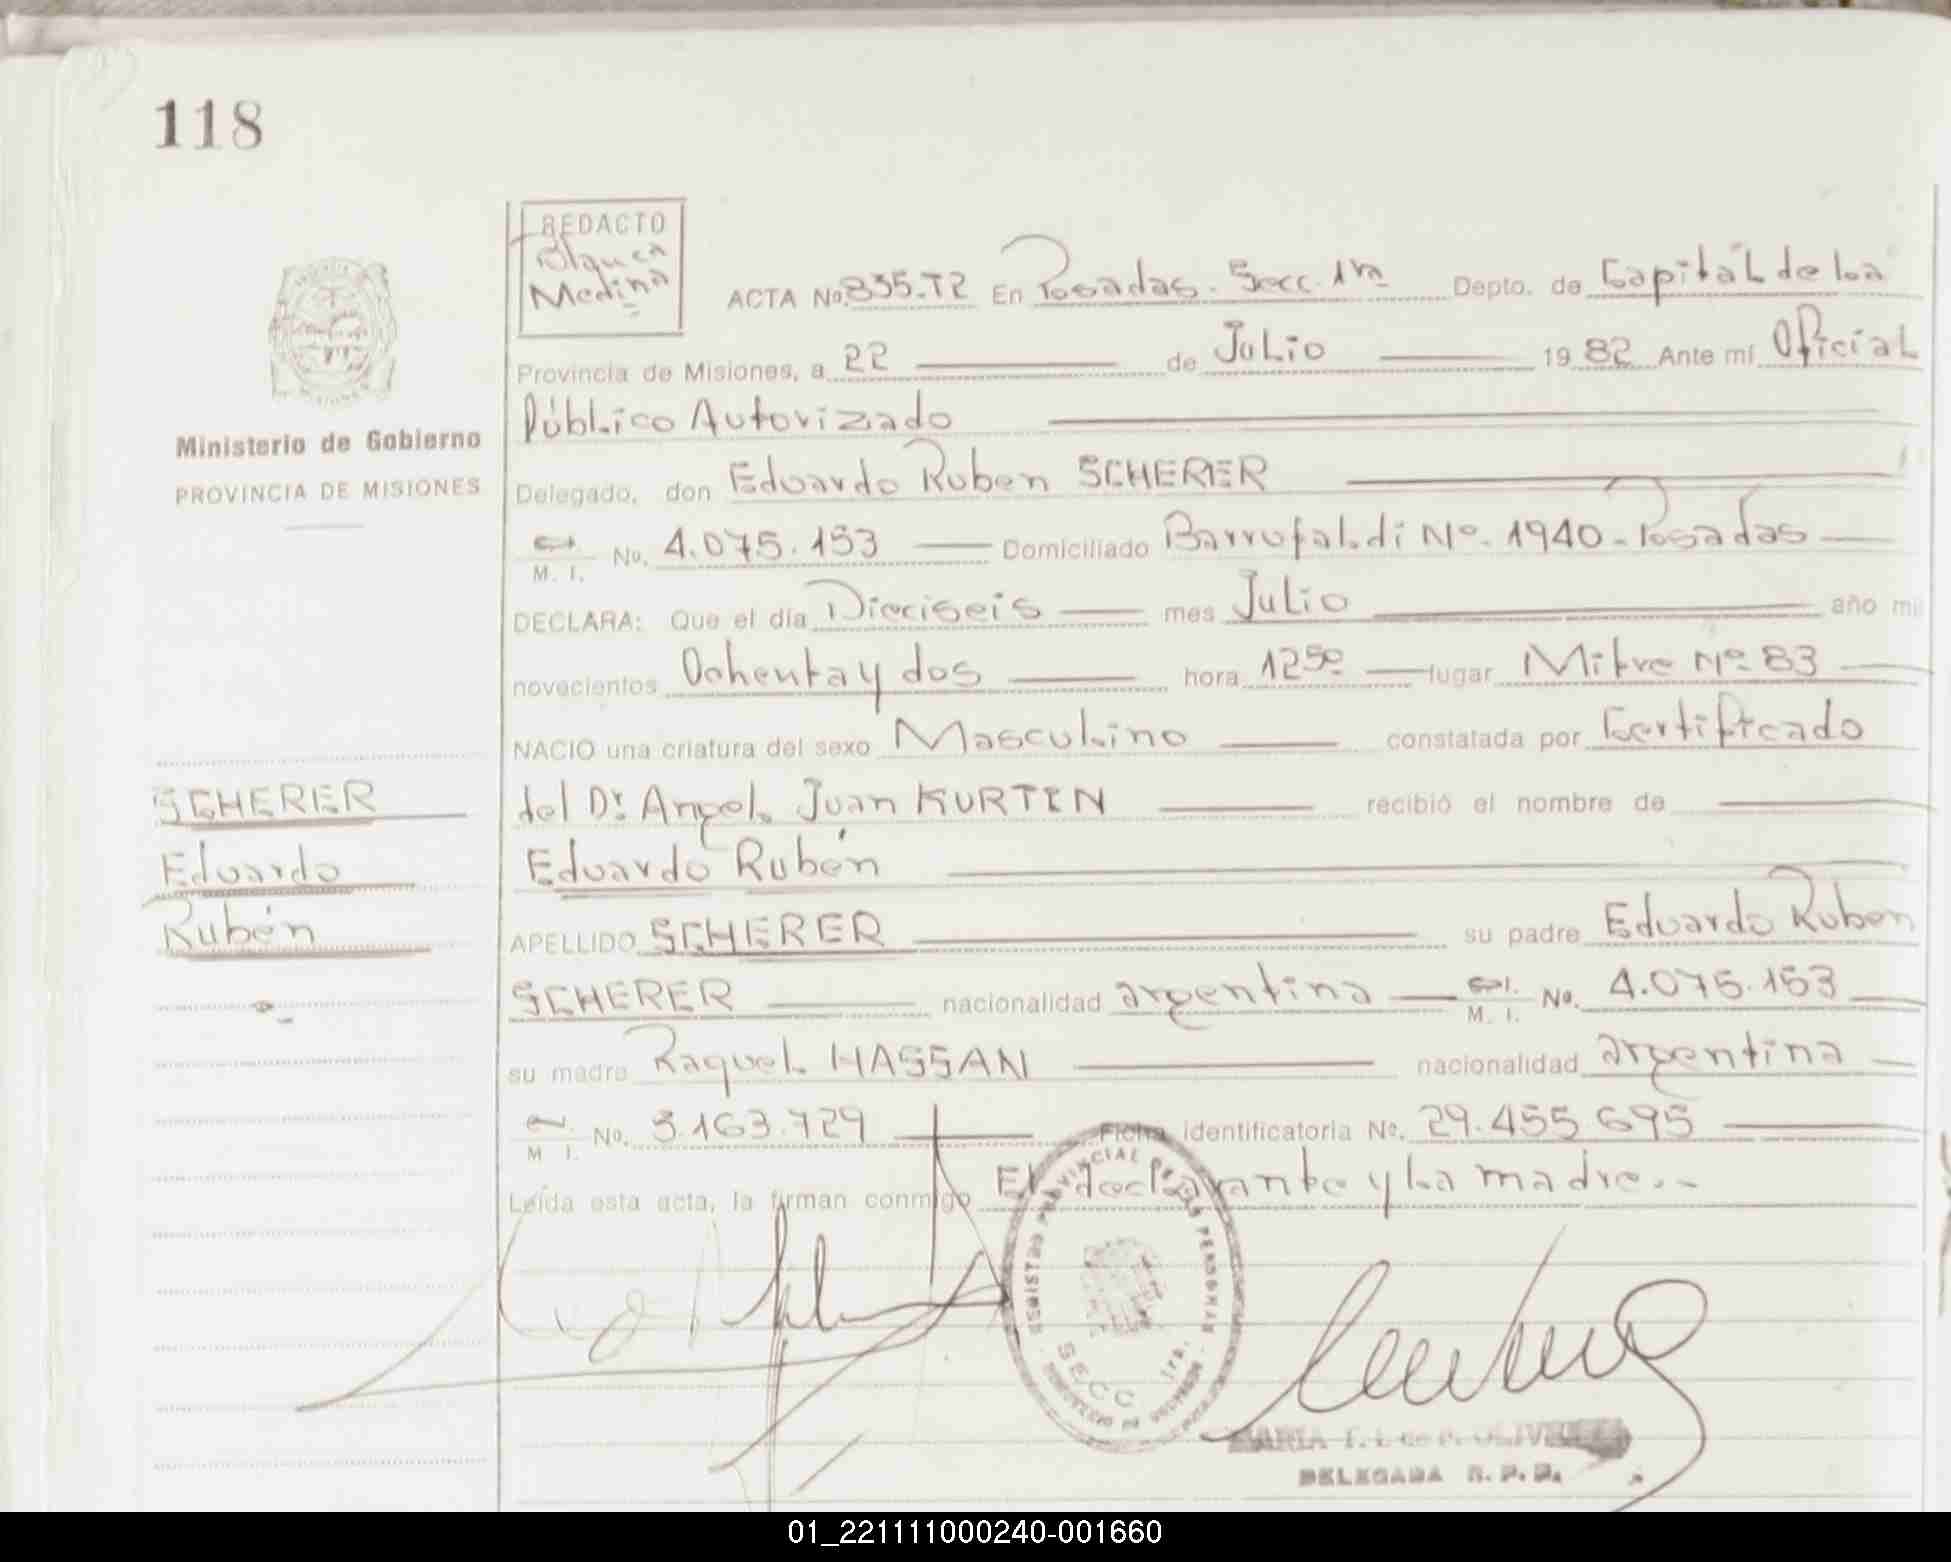 118
REDACTO
Blanca
Medina
ACTA No. 835-T2 En Posadas. Secc. 1ra Depto. de Capital de la
Provincia de Misiones, a 22 de Julio 1982 Ante mí Oficial
Público Autorizado
Ministerio de Gobierno
PROVINCIA DE MISIONES
Delegado, don Eduardo Ruben SCHERER
M. I. No. 4.075.153 Domiciliado Barrufaldi No. 1940 - Posadas
DECLARA: Que el día Dieciseis mes Julio año mil
novecientos Ochenta y dos hora 12 50 lugar Mitre No. 83
NACIO una criatura del sexo Masculino constatada por Certificado
del Dr. Angel Juan KURTEN recibió el nombre de
Eduardo Rubén
SCHERER
Eduardo
Rubén
APELLIDO SCHERER su padre Eduardo Ruben
SCHERER nacionalidad argentina M. I. No. 4.075.153
su madre Raquel HASSAN nacionalidad argentina
M. I. No. 3.163.729 Ficha identificatoria No. 29.455.695
Leída esta acta, la firman conmigo El declarante y la madre.-
REGISTRO PROVINCIAL DE LAS PERSONAS
SECC 1ra.
DELEGADA R. P. P.
01_221111000240-001660